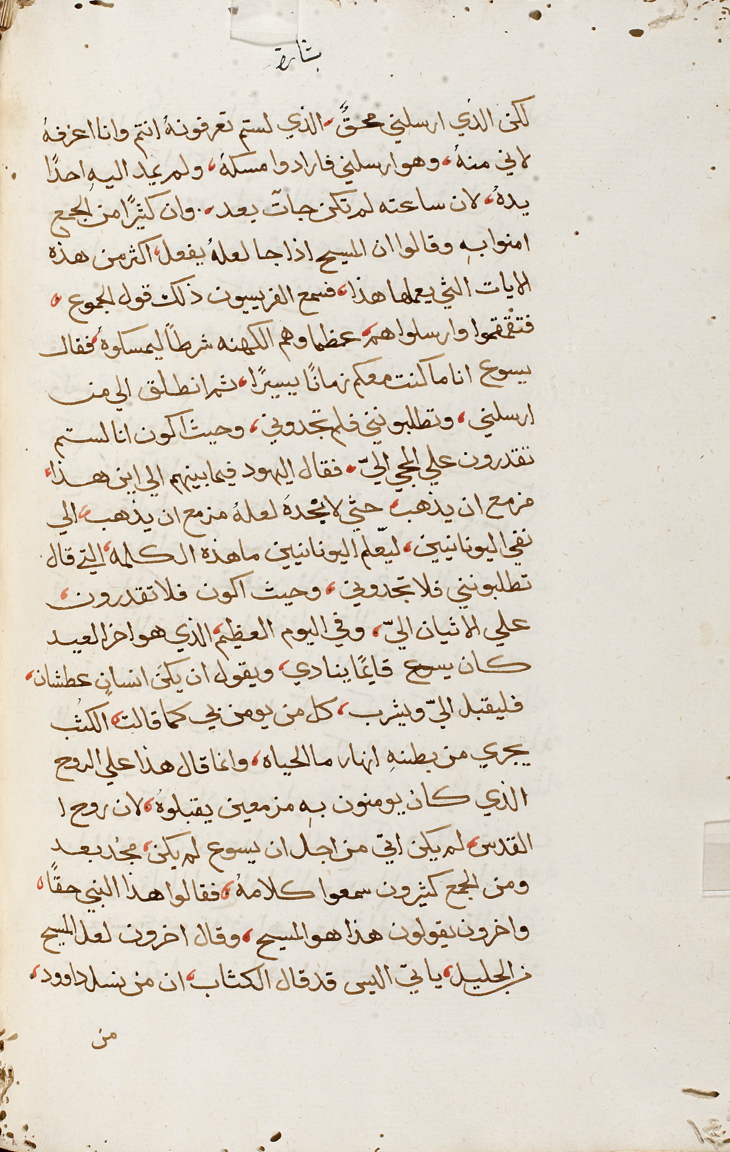 بشارة
لكن الذي ارسلني محقٌ، الذي لستم تعرفونهُ انتم وانا اعرفهُ
لاني منهُ، وهو ارسلني فارادوا مسكهُ، ولم يمد اليهِ احدًا
يدهُ، لان ساعته لم تكن جاتّ بعد، وان كثيرًا من الجمع
امنوا بهِ وقالوا ان المسيح اذا جا لعلهُ يفعل، اكثر من هذه
الايات التي يعملها هذا، فسمع الفريسيون ذلك قول الجموع،
فتقمقموا وارسلوا هم، عظماوهم الكهنه شرطاً ليمسكوهُ، فقال
يسوع انا ماكنت معكم زمانًا يسيرًا، ثم انطلق الي من
ارسلني، وتطلبونني فلم تجدوني، وحيث اكون انا لستم
تقدرون علي المجي اليّ، فقال اليهود فيما بينهم الي اين هذا،
مزمع ان يذهب، حتي لا نجدهَ لعلهُ مزمع ان يذهب، الي
نفي اليونانيين، ليعّلم اليونانيين ما هذه الكلمه، التي قال
تطلبونني فلا تجدوني، وحيث اكون فلا تقدرون،
علي الاتيان اليّ، وفي اليوم العظيم، الذي هو اخر العيد
كان يسوع قايمًا ينادي، ويقول ان يكن انسان عطشان،
فليقبل اليّ ويشرب، كل من يومن بي كما قالت، الكتُب
يجري من بطنهِ انهار ما الحياه، وانما قال هذا علي الروح
الذي كان يومنون بهِ مزمعين يقبلوهُ، لان روح ا
القدس، لم يكن اتي من اجل ان يسوع لم يكن، مجُد بعد
ومن الجمع كثيرون سمعوا كلامهُ، فقالوا هذا النبي حقًا،
واخرون يقولون هذا هو المسيح، وقال اخرون لعل المسيح
من الجليل، ياتي اليس قد قال الكتاب، ان من نسل داوود،
من